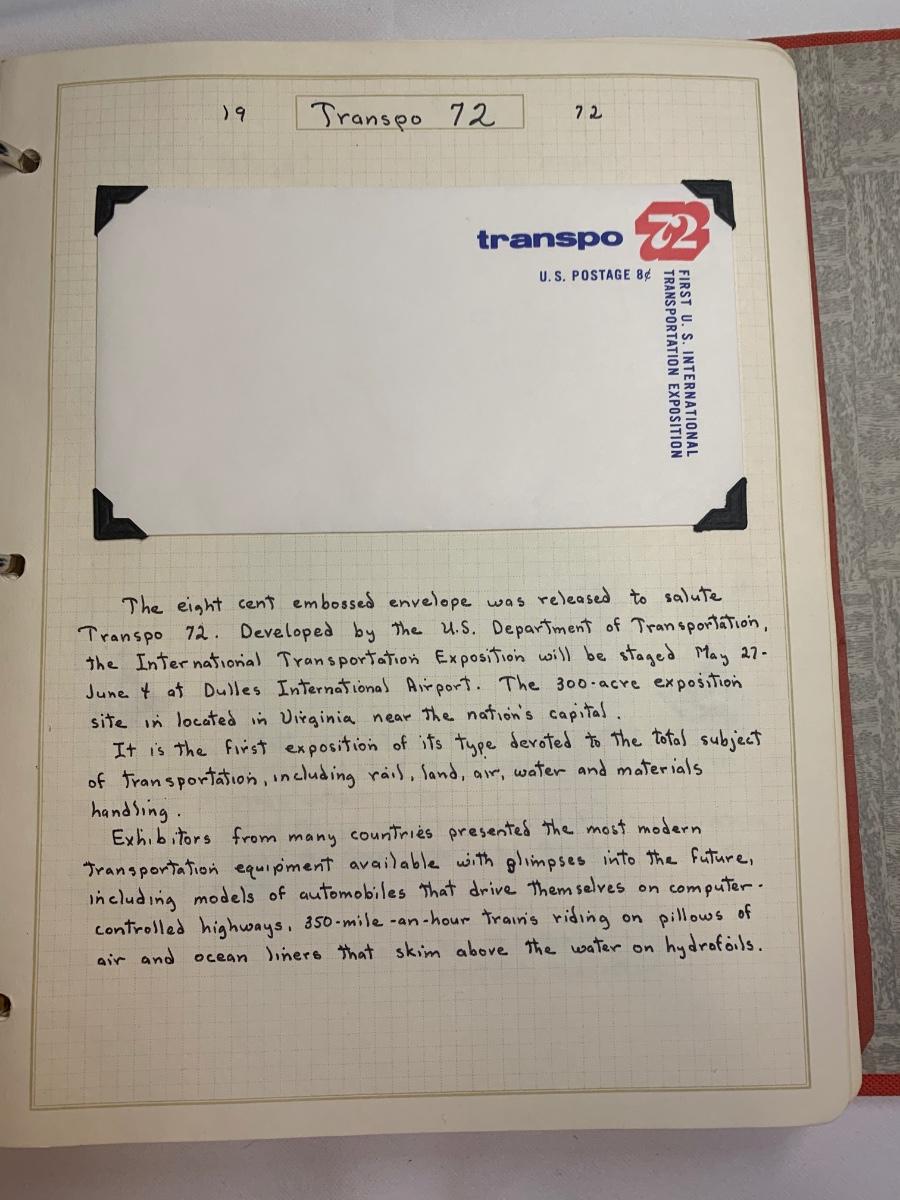 19 Transpo 72 72
transpo 72
U.S. POSTAGE 8¢
FIRST U. S. INTERNATIONAL
TRANSPORTATION EXPOSITION
The eight cent embossed envelope was released to salute
Transpo 72. Developed by the U.S. Department of Transportation,
the International Transportation Exposition will be staged May 27-
June 4 at Dulles International Airport. The 300-acre exposition
site in located in Virginia near the nation's capital.
It is the first exposition of its type devoted to the total subject
of transportation, including rail, land, air, water and materials
handling.
Exhibitors from many countries presented the most modern
transportation equipment available with glimpses into the future,
including models of automobiles that drive themselves on computer-
controlled highways, 350-mile-an-hour trains riding on pillows of
air and ocean liners that skim above the water on hydrofoils.